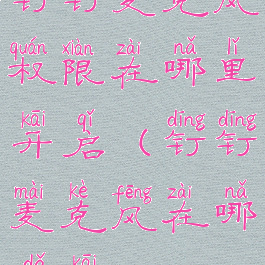 钉钉麦克风
quán xiàn zài nǎ lǐ
权限在哪里
kāi qǐ dīng dīng
开启（钉钉
mài kè fēng zài nǎ
麦克风在哪
kāi